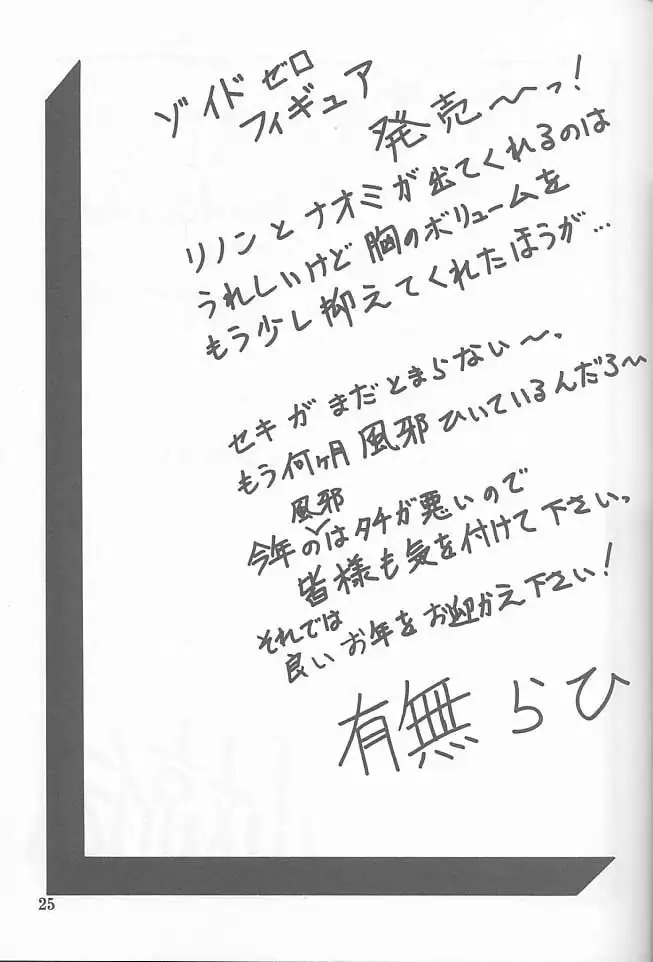 ゾイドゼロ
フィギュア
発売〜っ!
リノンとナオミが出てくれるのは
うれしいけど胸のボリュームを
もう少し抑えてくれたほうが…
セキがまだとまらない〜。
もう何ヶ月風邪ひいているんだろ〜
風邪
今年のはタチが悪いので
皆様も気を付けて下さい。
それでは
良いお年をお迎かえ下さい!
有無らひ
25